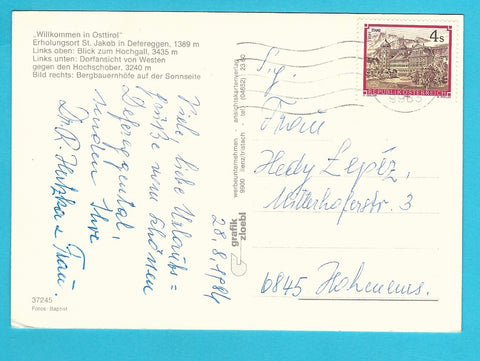 „Willkommen in Osttirol"
Erholungsort St. Jakob in Defereggen, 1389 m
Links oben: Blick zum Hochgall, 3435 m
Links unten: Dorfansicht von Westen
gegen den Hochschober, 3240 m
Bild rechts: Bergbauernhöfe auf der Sonnseite
Viele liebe Urlaubs=
grüße vom schönen
Defereggental,
senden Ihre
Dr. R. Hutzka u Frau.
28.8.1984
werbeunternehmen · ansichtskartenverlag
9900 lienz/tristach · tel. (04852)
grafik
zloebl
4s
REPUBLIK ÖSTERREICH
Frau
Hedy
Mitterhoferstr. 3
6845 Hohenems.
37245
Fotos: Baptist